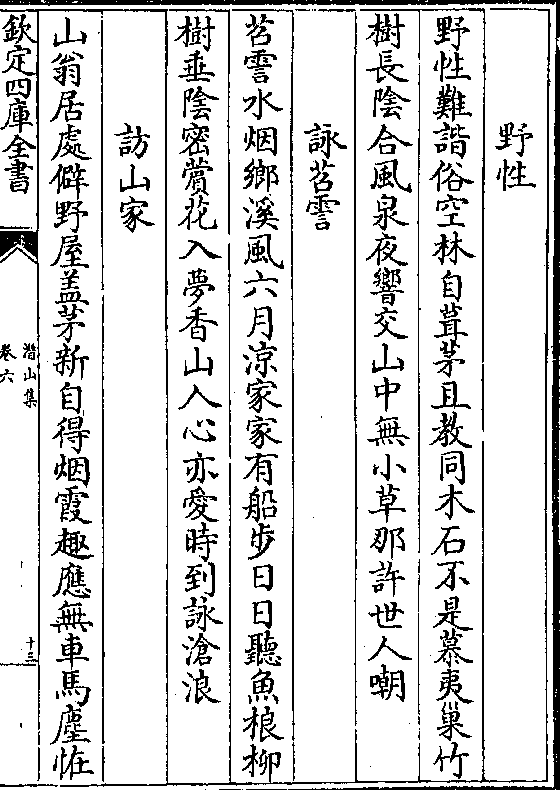 野性
野性難諧俗空林自葺茅且教同木石不是慕夷巢竹
樹長陰合風泉夜響交山中無小草那許世人嘲
詠苕霅
苕霅水烟鄉溪風六月涼家家有船步日日聽魚桹柳
樹垂陰密薲花入夢香山人心亦愛時到詠滄浪
訪山家
山翁居處僻野屋盖茅新自得烟霞趣應無車馬塵恠
欽定四庫全書
潛山集
卷六
十三